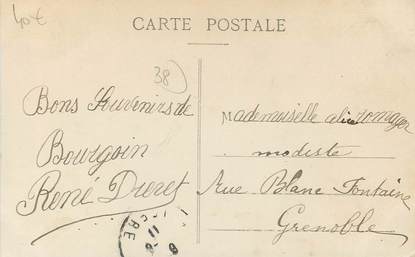 40€
CARTE POSTALE
38
Bons Souvenirs de
Bourgoin
René
Mademoiselle alice
modiste
Rue Blanc Fontaine
Grenoble